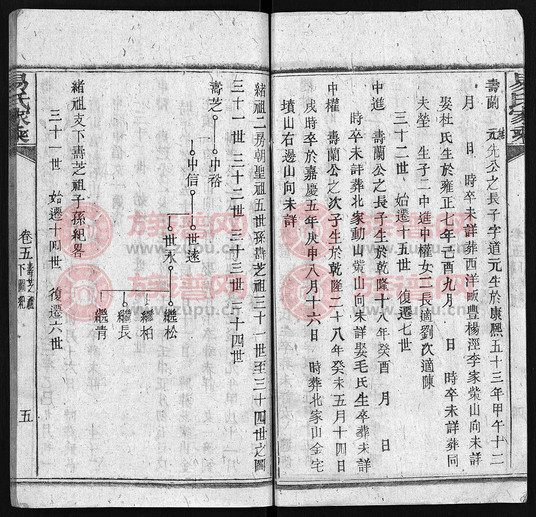 易氏家乘
壽蘭 元先公之長子字道元生於康熙五十三年甲午十二
月 日 時卒未詳葬西洋畈豐楊涇李家塋山向未詳
娶杜氏生於雍正七年己酉九月 日 時卒未詳葬同
夫塋 生子二中進中權女二長適劉次適陳
三十二世 始遷十五世 復遷七世
中進 壽蘭公之長子生於乾隆十八年癸酉 月 日
時卒未詳葬北家動山塋山向未詳娶毛氏生卒葬未詳
中權 壽蘭公之次子生於乾隆二十八年癸未五月十四日
戌時卒於嘉慶五年庚申八月十六日 時葬北家山金宅
墳山右邊山向未詳
緒祖二房朝聖祖五世孫壽芝祖三十一世至三十四世之圖
三十一世 三十二世 三十三世 三十四世
壽芝 中裕
中信 世遠
世永 繼松
繼柏
繼長
繼青
緒祖支下壽芝祖子孫紀畧
三十一世 始遷十四世 復遷六世
易氏家乘
卷五下 壽芝祖
五
族譜网
www.zupu.cn